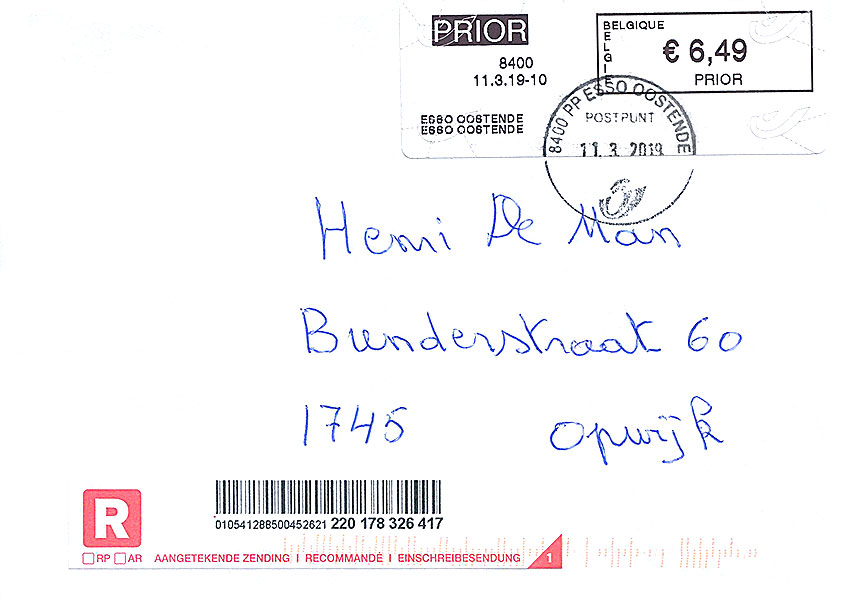 PRIOR
8400
11.3.19-10
ESSO OOSTENDE
ESSO OOSTENDE
BELGIQUE
BELGIE
€ 6,49
PRIOR
8400 PP ESSO OOSTENDE
POSTPUNT
11. 3. 2019
Henri De Man
Bunderstraat 60
1745 Opwijk
R
RP AR AANGETEKENDE ZENDING I RECOMMANDÉ I EINSCHREIBESENDUNG 1
010541288500452621 220 178 326 417